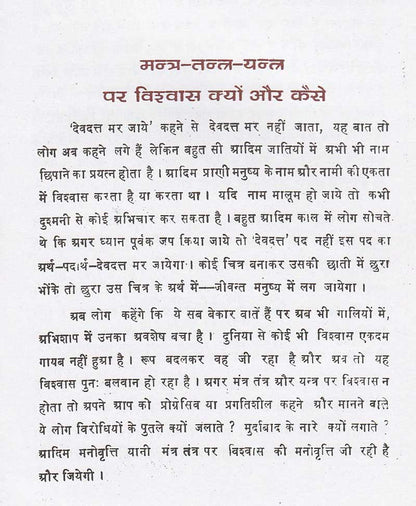 मन्त्र-तन्त्र-यन्त्र
पर विश्वास क्यों और कैसे
‘देवदत्त मर जाये’ कहने से देवदत्त मर नहीं जाता, यह बात तो
लोग अब कहने लगे हैं लेकिन बहुत सी आदिम जातियों में अभी भी नाम
छिपाने का प्रयत्न होता है । आदिम प्राणी मनुष्य के नाम और नामी की एकता
में विश्वास करता है या करता था । यदि नाम मालूम हो जाये तो कभी
दुश्मनी से कोई अभिचार कर सकता है । बहुत आदिम काल में लोग सोचते
थे कि अगर ध्यान पूर्वक जप किया जाये तो ‘देवदत्त’ पद नहीं इस पद का
अर्थ-पदार्थ-देवदत्त मर जायेगा । कोई चित्र बनाकर उसकी छाती में छुरा
भोंके तो छुरा उस चित्र के अर्थ में—जीवन्त मनुष्य में लग जायेगा ।
अब लोग कहेंगे कि ये सब बेकार बातें हैं पर अब भी गालियों में,
अभिशाप में उनका अवशेष बचा है । दुनिया से कोई भी विश्वास एकदम
गायब नहीं हुआ है । रूप बदलकर वह जी रहा है और अब तो यह
विश्वास पुनः बलवान हो रहा है । अगर मंत्र तंत्र और यन्त्र पर विश्वास न
होता तो अपने आप को प्रोग्रेसिव या प्रगतिशील कहने और मानने वाले
ये लोग विरोधियों के पुतले क्यों जलाते ? मुर्दाबाद के नारे क्यों लगाते ?
आदिम मनोवृत्ति यानी मंत्र तंत्र पर विश्वास की मनोवृत्ति जी रही है
और जियेगी ।